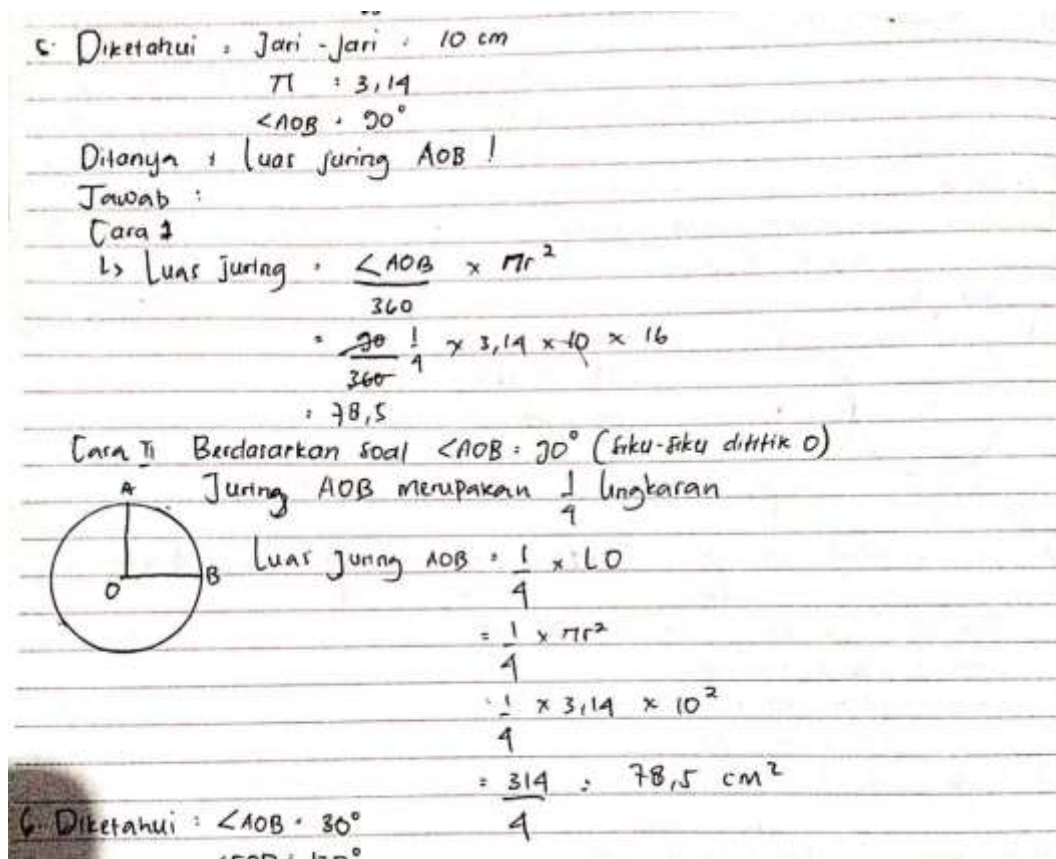 5. Diketahui : Jari-Jari : 10 cm
π : 3,14
∠AOB : 90°
Ditanya : Luas juring AOB !
Jawab :
Cara 1
↳ Luas juring : ∠AOB/360 × πr²
= 90/360 1/4 × 3,14 × 10 × 10
: 78,5
Cara II Berdasarkan soal ∠AOB = 90° (siku-siku dititik O)
Juring AOB merupakan 1/4 lingkaran
A
O
B
Luas Juring AOB = 1/4 × LO
= 1/4 × πr²
= 1/4 × 3,14 × 10²
= 314/4 = 78,5 cm²
6. Diketahui : ∠AOB = 30°